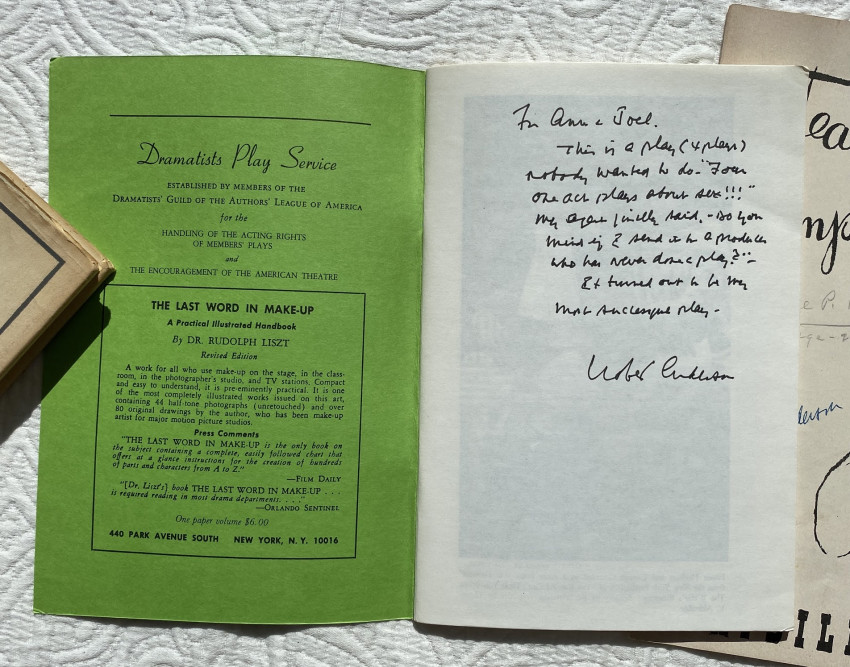 Dramatists Play Service
ESTABLISHED BY MEMBERS OF THE
DRAMATISTS' GUILD OF THE AUTHORS' LEAGUE OF AMERICA
for the
HANDLING OF THE ACTING RIGHTS
OF MEMBERS' PLAYS
and
THE ENCOURAGEMENT OF THE AMERICAN THEATRE
THE LAST WORD IN MAKE-UP
A Practical Illustrated Handbook
By DR. RUDOLPH LISZT
Revised Edition
A work for all who use make-up on the stage, in the class-
room, in the photographer's studio, and TV stations. Compact
and easy to understand, it is pre-eminently practical. It is one
of the most completely illustrated works issued on this art,
containing 44 half-tone photographs (unretouched) and over
80 original drawings by the author, who has been make-up
artist for major motion picture studios.
Press Comments
"THE LAST WORD IN MAKE-UP is the only book on
the subject containing a complete, easily followed chart that
offers at a glance instructions for the creation of hundreds
of parts and characters from A to Z."
—FILM DAILY
"[Dr. Liszt's] book THE LAST WORD IN MAKE-UP . . .
is required reading in most drama departments. . . ."
—ORLANDO SENTINEL
One paper volume $6.00
440 PARK AVENUE SOUTH NEW YORK, N. Y. 10016
For Anne & Joel.
This is a play (4 plays)
nobody wanted to do. "Four
one act plays about sex!!!"
my agent finally said, - "Do you
mind if I send it to a producer
who has never done a play?" -
It turned out to be my
most successful play -
Robert Anderson